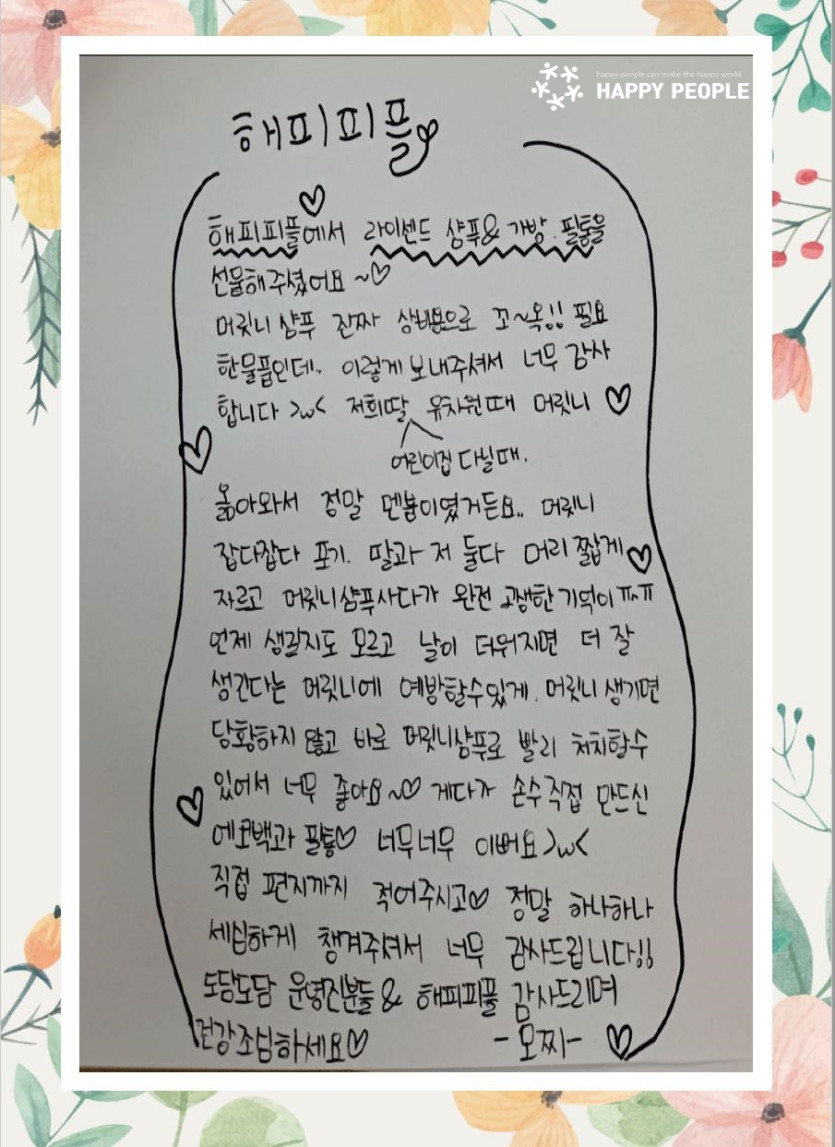 happy people can make the happy world
HAPPY PEOPLE
해피피플
해피피플에서 라이센드 샴푸& 가방. 필통을
선물해주셨어요~♡
머릿니 샴푸 진짜 상비용으로 꼬~옥!! 필요
한물품인데.. 이렇게 보내주셔서 너무 감사
합니다 >w< 저희딸 유치원때 머릿니
어린이집 다닐때.
옮아와서 정말 멘붕이였거든요.. 머릿니
잡다잡다 포기. 딸과 저 둘다 머리 짧게
자르고 머릿니샴푸사다가 완전 고생한 기억이 ㅠㅠ
언제 생길지도 모르고 날이 더워지면 더 잘
생긴다는 머릿니에 예방할수있게. 머릿니 생기면
당황하지 않고 바로 머릿니샴푸로 빨리 처치할수
있어서 너무 좋아요~♡ 게다가 손수직접 만드신
에코백과 필통♡ 너무너무 이뻐요>w<
직접 편지까지 적어주시고♡ 정말 하나하나
세심하게 챙겨주셔서 너무 감사드립니다!!
도담도담 운영진분들 & 해피피플 감사드리며
건강조심하세요♡ -모찌-